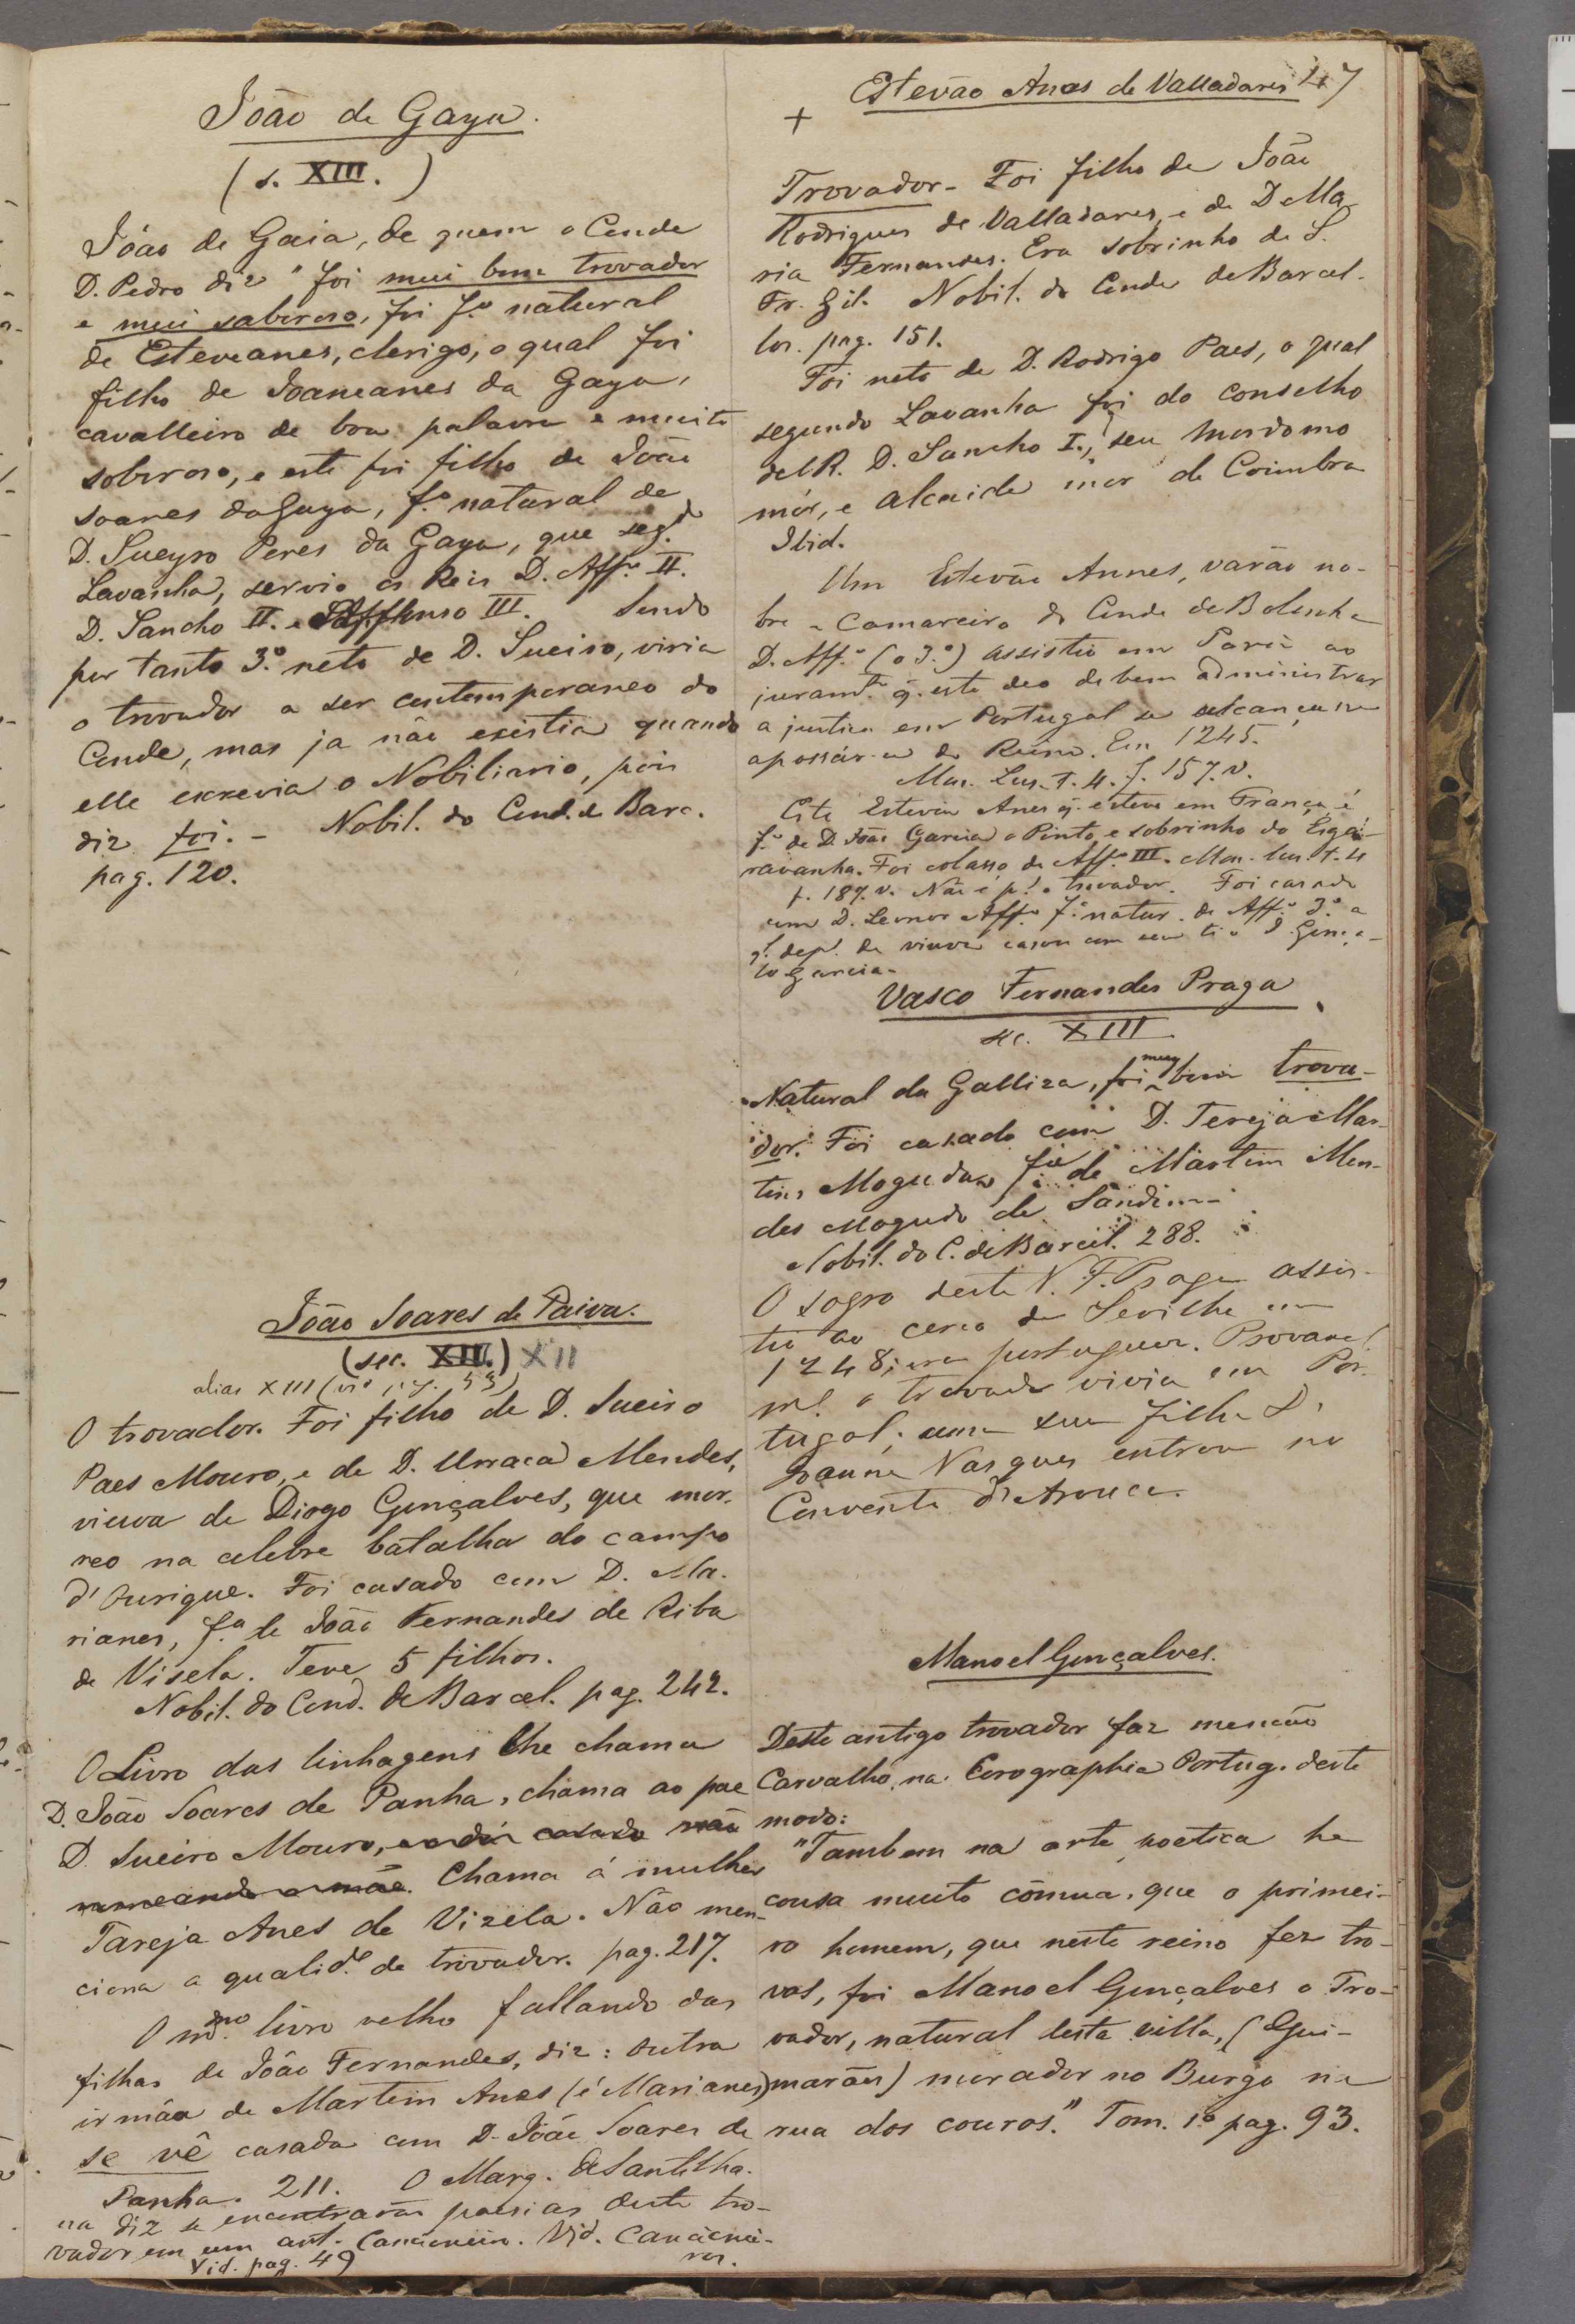 João de Gaya.
(s. XIII.)
João de Gaia, de quem o Conde
D. Pedro diz "foi mui bom trovador
e mui saboroso, foi f.º natural
de Esteveanes, clerigo, o qual foi
filho de Joaneanes da Gaya,
cavalleiro de boa palavra e muito
soboroso, e este foi filho de João
Soares da Gaya, f.º natural de
D. Sueyro Peres da Gaya, que seg.do
Lavanha, servio os Reis D. Aff.º II.
D. Sancho II. e D. Affonso III. Sendo
por tanto 3.º neto de D. Sueiro, viria
o trovador a ser contemporaneo do
Conde, mas ja não existia quando
elle escrevia o Nobiliario, pois
diz foi. - Nobil. do Cond. de Barc.
pag. 120.
João Soares de Paiva.
(sec. XII.) XII
alias XIII (vid pag.
O trovador. Foi filho de D. Sueiro
Paes Mouro, e de D. Urraca Mendes,
viuva de Diogo Gonçalves, que mor-
reo na celebre batalha do campo
d'Ourique. Foi casado com D. Ma-
rianes, f.ª de João Fernandes de Riba
de Visela. Teve 5 filhos.
Nobil. do Cond. de Barcel. pag. 242.
O Livro das linhagens lhe chama
D. João Soares de Panha, chama ao pae
D. Sueiro Mouro,
Chama á mulher
Tareja Anes de Vizela. Não men-
ciona a qualid.e de trovador. pag. 217.
O m.mo livro velho fallando das
filhas de João Fernandes, diz: outra
irmãa de Martim Anes (é Marianes)
se vê casada com D. João Soares de
Panha. 211. O Marq. de Santilha-
na diz se encontravão poesias deste tro-
vador em um ant. Cancioneiro. Vid. Cancionei-
ros.
Vid. pag. 49
47
Estevão Anes de Valladares
+
Trovador - Foi filho de João
Rodrigues de Valladares, e de D. Ma-
ria Fernandes. Era sobrinho de S.
Fr. Gil. Nobil. do Conde de Barcel-
los. pag. 151.
Foi neto de D. Rodrigo Paes, o qual
segundo Lavanha foi do conselho
del R. D. Sancho I., seu mordomo
mór, e alcaide mor de Coimbra
Ibid.
Um Estevão Annes, varão no-
bre e Camareiro do Conde de Bolonha
D. Aff.º (o 3.º) assistio em Paris ao
juram.to q. este deo de bem administrar
a justiça em Portugal se alcançasse
apossar-se do Reino. Em 1245.
Mon. Lus. t. 4. f. 157. v.
Este Estevão Anes q. esteve em França é
f.º de D. João Garcia o Pinto, e sobrinho do Esga-
ravanha. Foi colasso de Aff.º III. Mon. Lus. t. 4
f. 187. v. Não é p.r o trovador. Foi casado
com D. Leonor Aff.º f.ª natur. de Aff.º 3.º a
q.l dep.s de viuva casou com seu tio D. Gonça-
lo Garcia.
Vasco Fernandes Praga
sec. XIII
Natural da Galliza, foi muy bom trova-
dor. Foi casado com D. Tereja Mar-
tins Mogudo, f.ª de Martim Men-
des Mogudo de Sandim
Nobil. do C. de Barcel. 288.
O sogro deste V. F. Praga assis-
tio ao cerco de Sevilha em
1248; era portuguez. Provavel
m.te o trovador vivia em Por-
tugal; uma sua filha D.
Joanna Vasques entrou no
Convento d'Arouca.
Manoel Gonçalves.
Deste antigo trovador faz menção
Carvalho, na Corographia Portug. deste
modo:
"Tambem na arte poetica he
cousa muito cõmua, que o primei-
ro homem, que neste reino fez tro-
vas, foi Manoel Gonçalves o Tro-
vador, natural desta villa, (Gui-
marães) morador no Burgo na
rua dos couros." Tom. 1.º pag. 93.